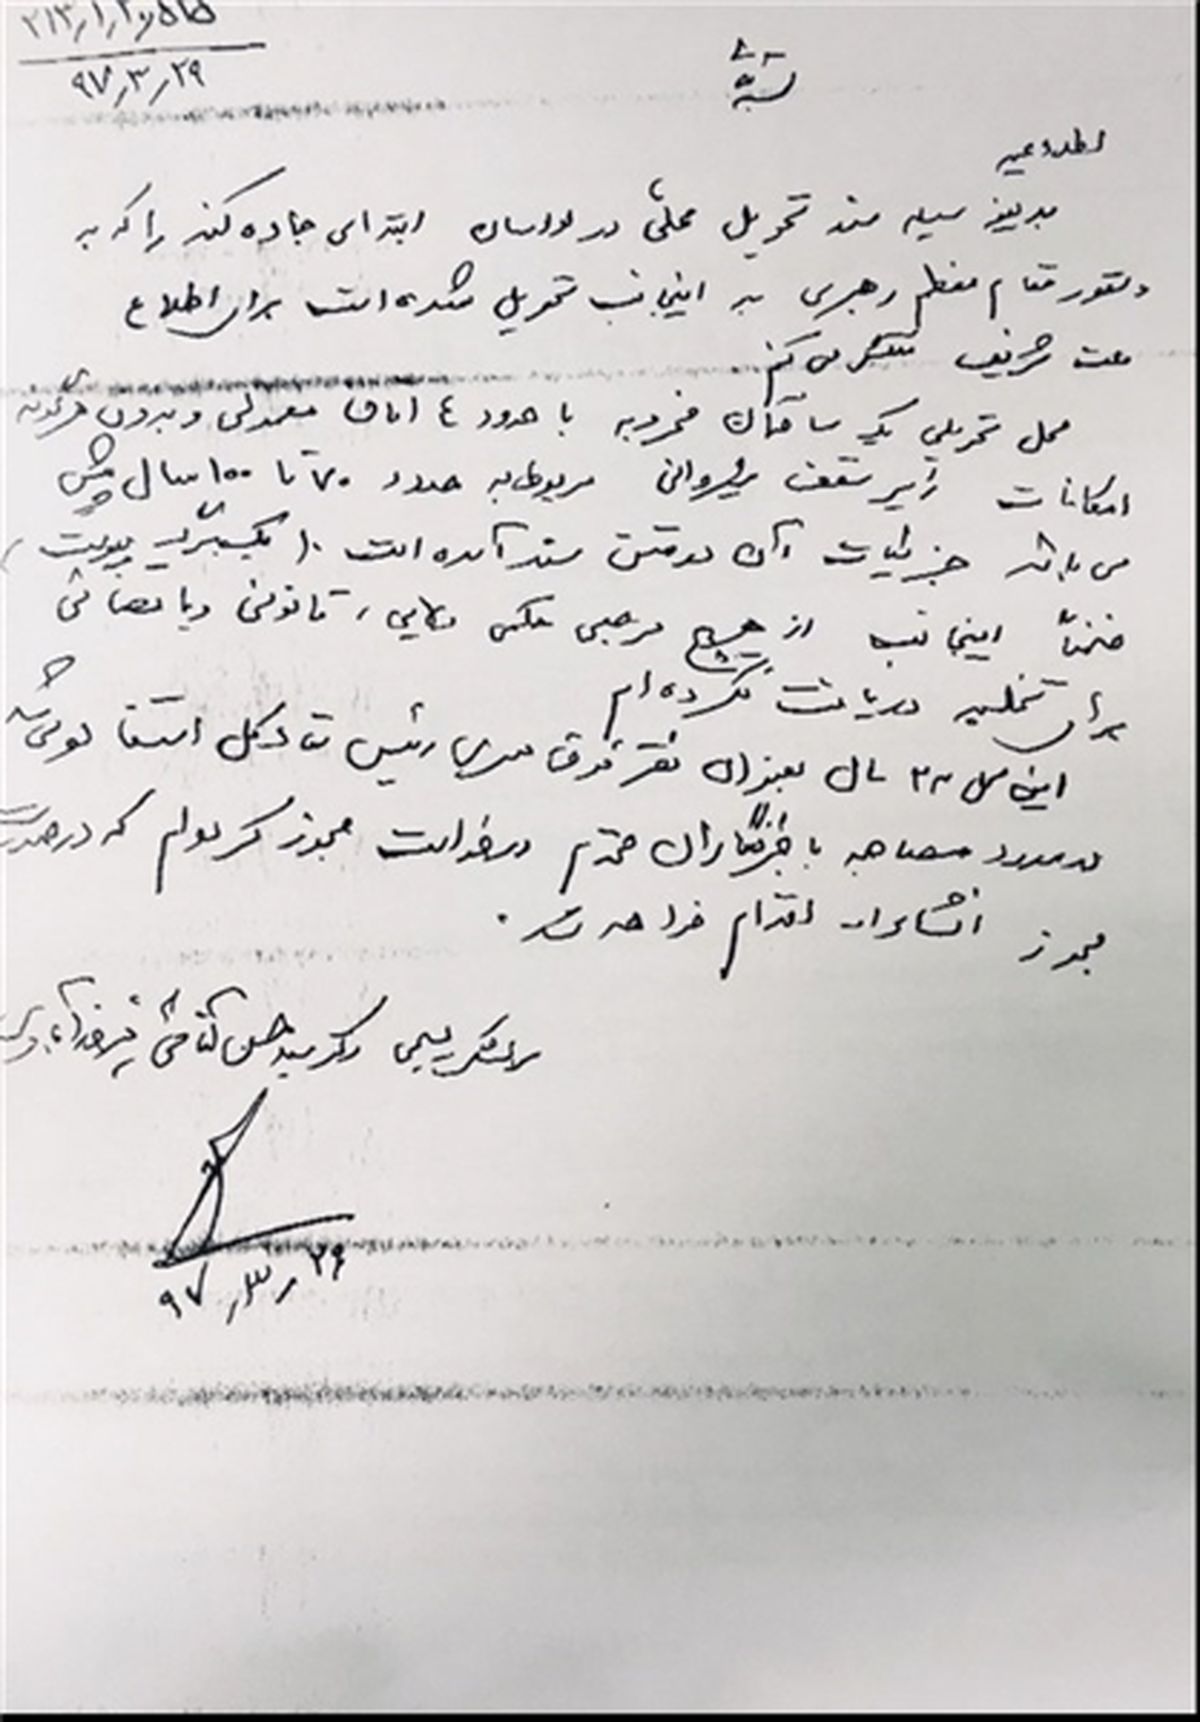 ۹۷٫۳٫۲۹
بسمه تعالی
اطلاعیه
بدینوسیله سند تحویل محلی در لواسان ابتدای جاده کند را که به
دستور مقام معظم رهبری به اینجانب تحویل شده است برای اطلاع
ملت شریف منتشر می کنم
محل تحویلی یک ساختمان مخروبه با حدود ٤ اطاق معمولی و بدون هرگونه
امکانات زیر سقف شیروانی مربوط به حدود ۷۰ تا ۱۰۰ سال پیش
می باشد جزئیات آن در متن سند آمده است. (یک برگ پیوست)
ضمناً اینجانب از هیچ مرجعی حکمی قانونی و یا قضائی
برای تخلیه دریافت نکرده ام
این محل ۲۳ سال بعنوان مقر فوق سری رئیس ستاد کل استفاده
در مورد مصاحبه با خبرنگاران محترم درخواست مجوز کرده ام که در صورت
مجوز انشاءاله اقدام خواهد شد.
سرلشکر بسیجی دکتر سید حسن آقائی فیروزآبادی
۹۷٫۳٫۲۹